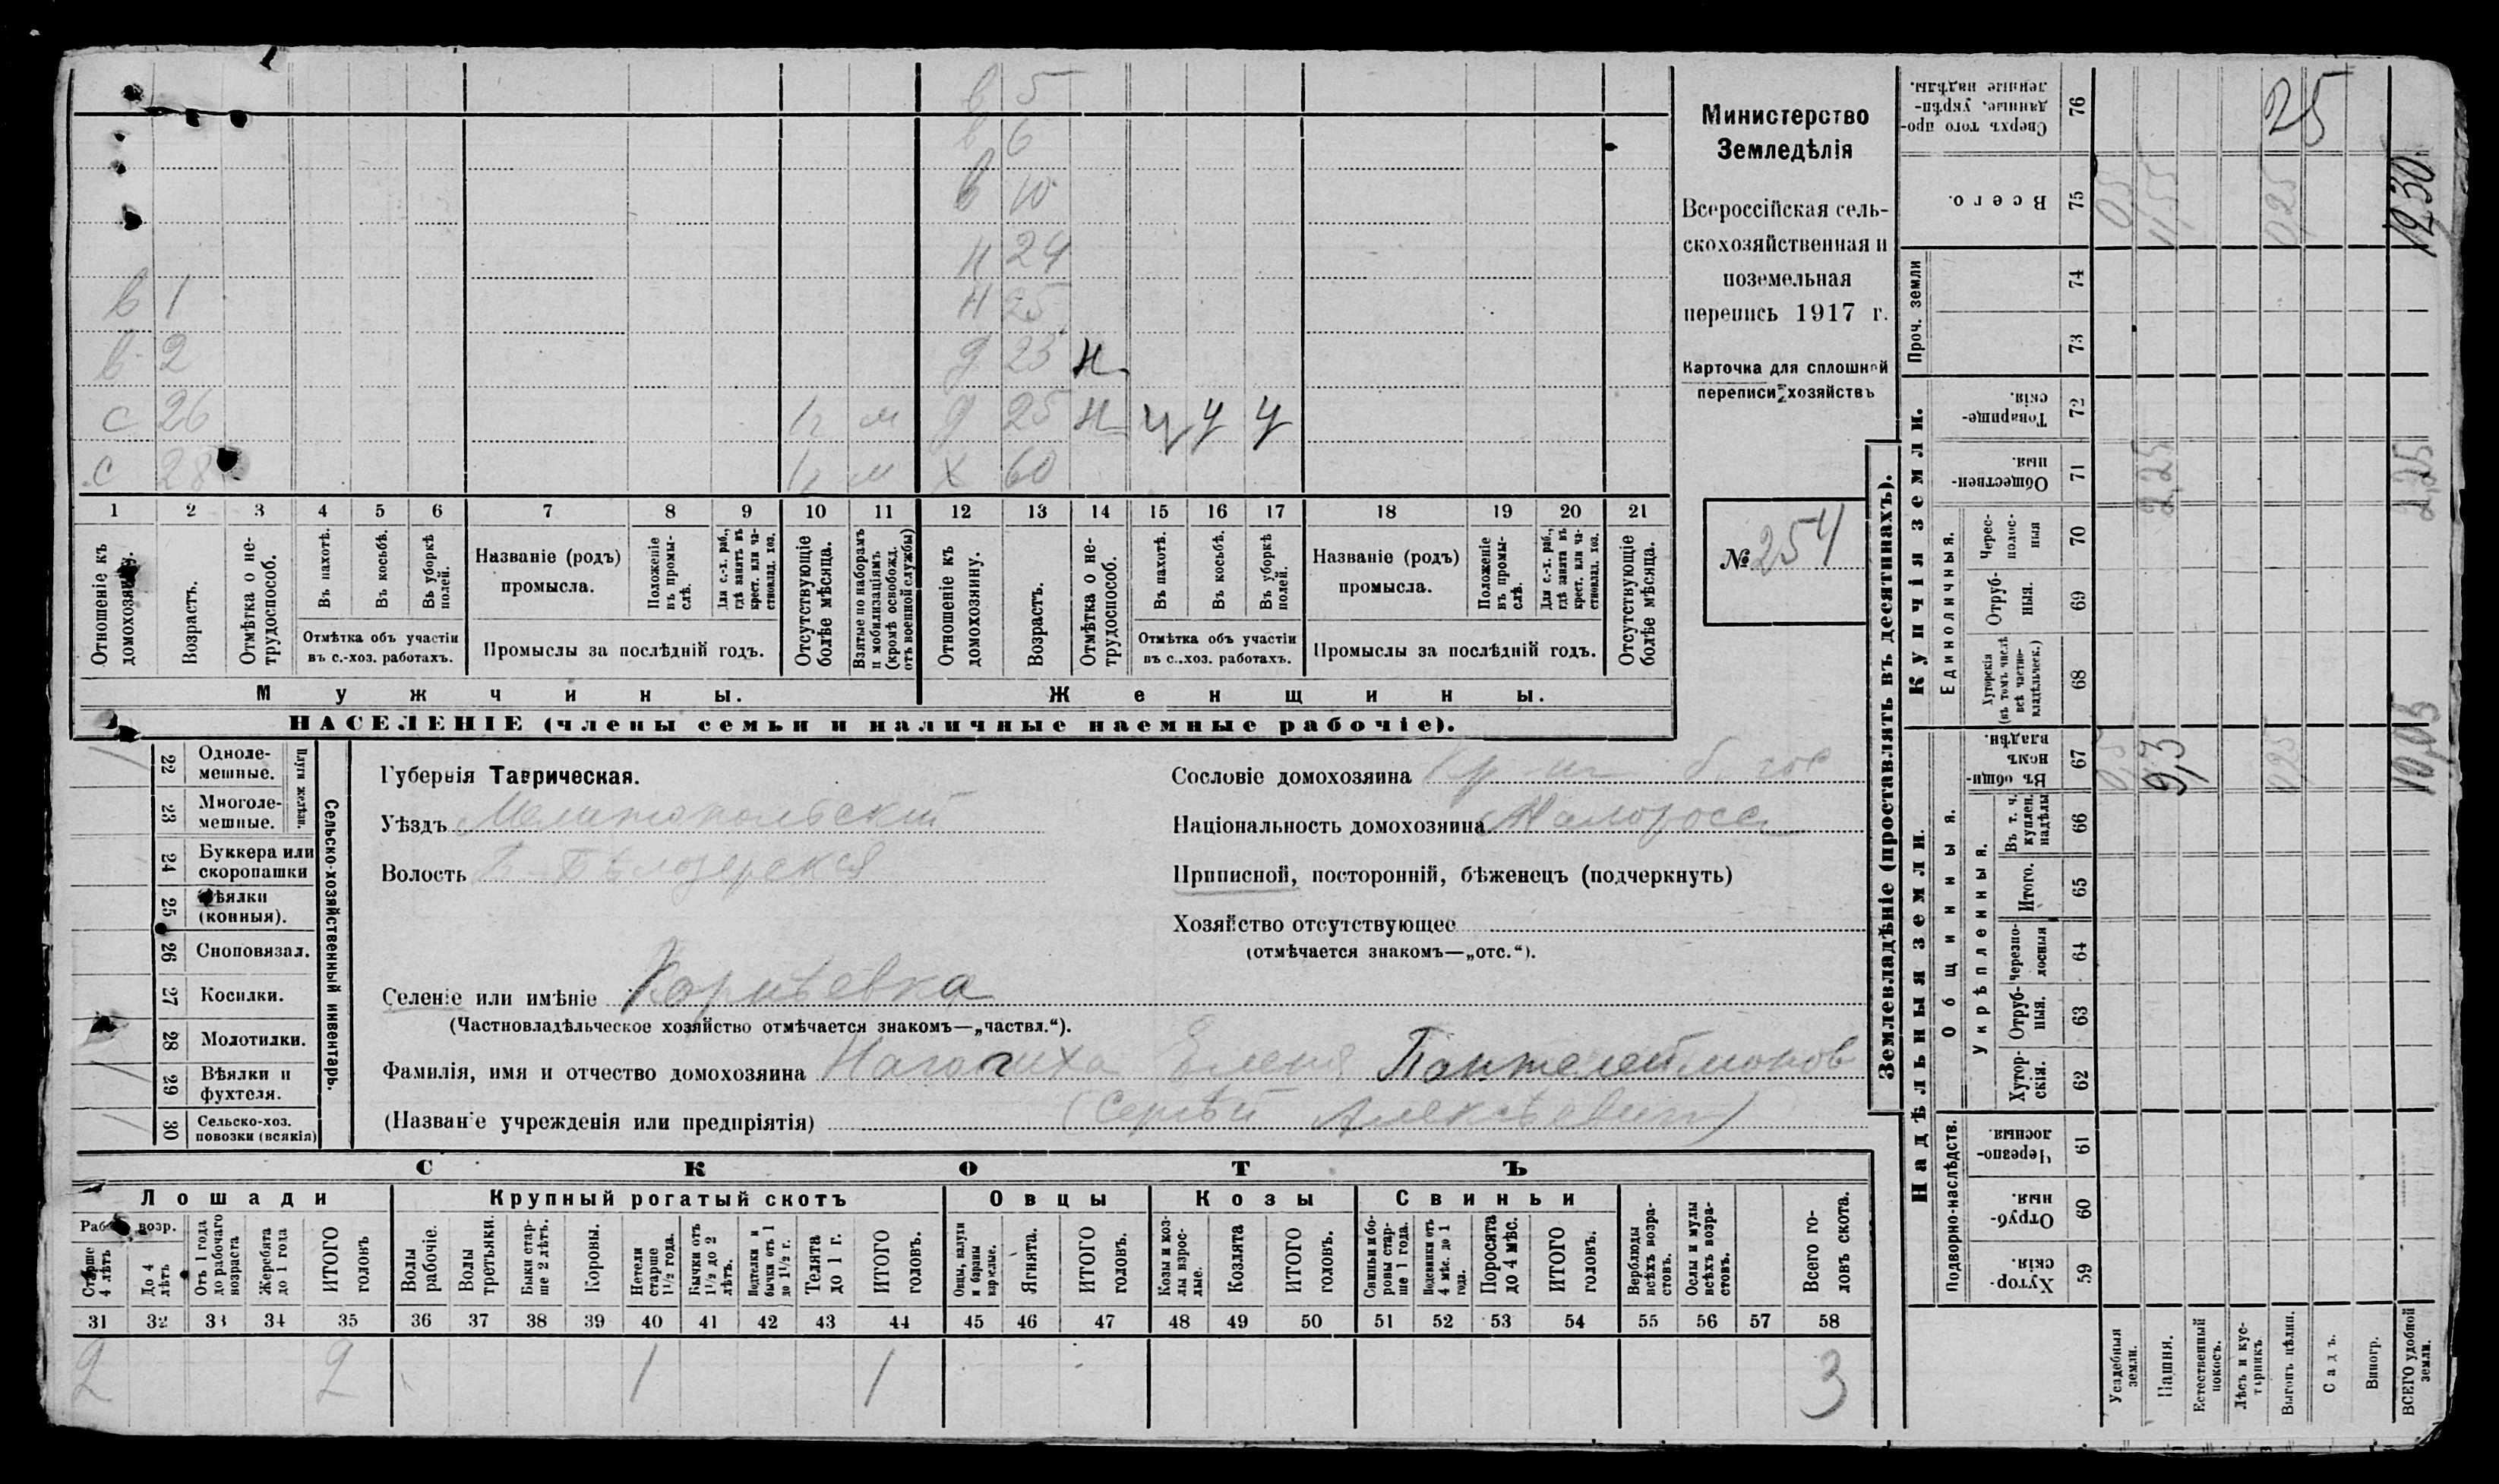 в 5
в 6
в 10
н 24
в 1 н 25
в 2 д 23 н
с 26 м д 25 н у у у
с 28 м х 60
1 2 3 4 5 6 7 8 9 10 11 12 13 14 15 16 17 18 19 20 21
Отношеніе къ домохозяину.
Возрастъ.
Отмѣтка о не-трудоспособ.
Въ пахотѣ.
Въ косьбѣ.
Въ уборкѣ полей.
Отмѣтка объ участіи
въ с.-хоз. работахъ.
Названіе (родъ)
промысла.
Положеніе въ промы-слѣ.
Для с.-х. раб., гдѣ занятъ въ крест. или ча-стновлад. хоз.
Промыслы за послѣдній годъ.
Отсутствующіе болѣе мѣсяца.
Взятые по наборамъ и мобилизаціямъ (кромѣ освобожд. отъ военной службы)
Отношеніе къ домохозяину.
Возрастъ.
Отмѣтка о не-трудоспособ.
Въ пахотѣ.
Въ косьбѣ.
Въ уборкѣ полей.
Отмѣтка объ участіи
въ с.-хоз. работахъ.
Названіе (родъ)
промысла.
Положеніе въ промы-слѣ.
Для с.-х. раб., гдѣ занята въ крест. или ча-стновлад. хоз.
Промыслы за послѣдній годъ.
Отсутствующіе болѣе мѣсяца.
Мужчины. Женщины.
НАСЕЛЕНІЕ (члены семьи и наличные наемные рабочіе).
Министерство
Земледѣлія
Всероссійская сель-
скохозяйственная и
поземельная
перепись 1917 г.
Карточка для сплошной
переписи хозяйствъ
№ 254
22 Одноле-мешные.
23 Многоле-мешные.
Плуги желѣзн.
24 Буккера или скоропашки
25 Сѣялки (конныя).
26 Сноповязал.
27 Косилки.
28 Молотилки.
29 Вѣялки и фухтеля.
30 Сельско-хоз. повозки (всякія)
Сельско-хозяйственный инвентарь.
Губернія Таврическая.
Уѣздъ Мелитопольскій
Волость Бѣлозерская
Сословіе домохозяина
Національность домохозяина Малоросс
Приписной, посторонній, бѣженецъ (подчеркнуть)
Хозяйство отсутствующее
(отмѣчается знакомъ—„отс.“).
Селеніе или имѣніе Корнѣевка
(Частновладѣльческое хозяйство отмѣчается знакомъ—„частвл.“).
Фамилія, имя и отчество домохозяина Елена Пантелеймонов
(Названіе учрежденія или предпріятія) (Сергѣй Алексѣевич)
СКОТЪ
Лошади Крупный рогатый скотъ Овцы Козы Свиньи
Рабоч. возр.
Старше 4 лѣтъ
До 4 лѣтъ
Отъ 1 года до рабочаго возраста
Жеребята до 1 года
ИТОГО головъ
Волы рабочіе.
Волы третьяки.
Быки стар-ше 2 лѣтъ.
Коровы.
Нетели старше 1½ года.
Бычки отъ 1½ до 2 лѣтъ.
Подтелки и бычки отъ 1 до 1½ г.
Телята до 1 г.
ИТОГО головъ.
Овцы, валухи и бараны взрослые.
Ягнята.
ИТОГО головъ.
Козы и коз-лы взрос-лые.
Козлята
ИТОГО головъ.
Свиньи и бо-ровы стар-ше 1 года.
Подсвинки отъ 4 мѣс. до 1 года.
Поросята до 4 мѣс.
ИТОГО головъ.
Верблюды всѣхъ возра-стовъ.
Ослы и мулы всѣхъ возра-стовъ.
Всего го-ловъ скота.
31 32 33 34 35 36 37 38 39 40 41 42 43 44 45 46 47 48 49 50 51 52 53 54 55 56 57 58
2 2 1 1 3
Землевладѣніе (проставлять въ десятинахъ).
Сверхъ того про-данные, укрѣп-ленные надѣлы. 76 25
Всего. 75 0,5 11,55 0,25 12,30
Проч. земли
74
73
Купчія земли.
Товарище-скія. 72
Обществен-ныя. 71 2,25 2,25
Единоличныя.
Черес-полос-ныя 70
Отруб-ныя. 69
Хуторскія (въ томъ числѣ всѣ частно-владѣльческ.) 68
Надѣльныя земли.
Общинныя.
Въ общин-номъ владѣн. 67 0,5 9,3 0,25 10,05
Укрѣпленныя.
Въ т. ч. куплен. надѣлы 66
Итого. 65
Черезпо-лосныя 64
Отруб-ныя. 63
Хутор-скія. 62
Подворно-наслѣдств.
Черезпо-лосныя. 61
Отруб-ныя. 60
Хутор-скія. 59
Усадебныя земли.
Пашня.
Естественный покосъ.
Лѣсъ и кус-тарникъ
Выгонъ цѣлин.
Садъ.
Виногр.
ВСЕГО удобной земли.